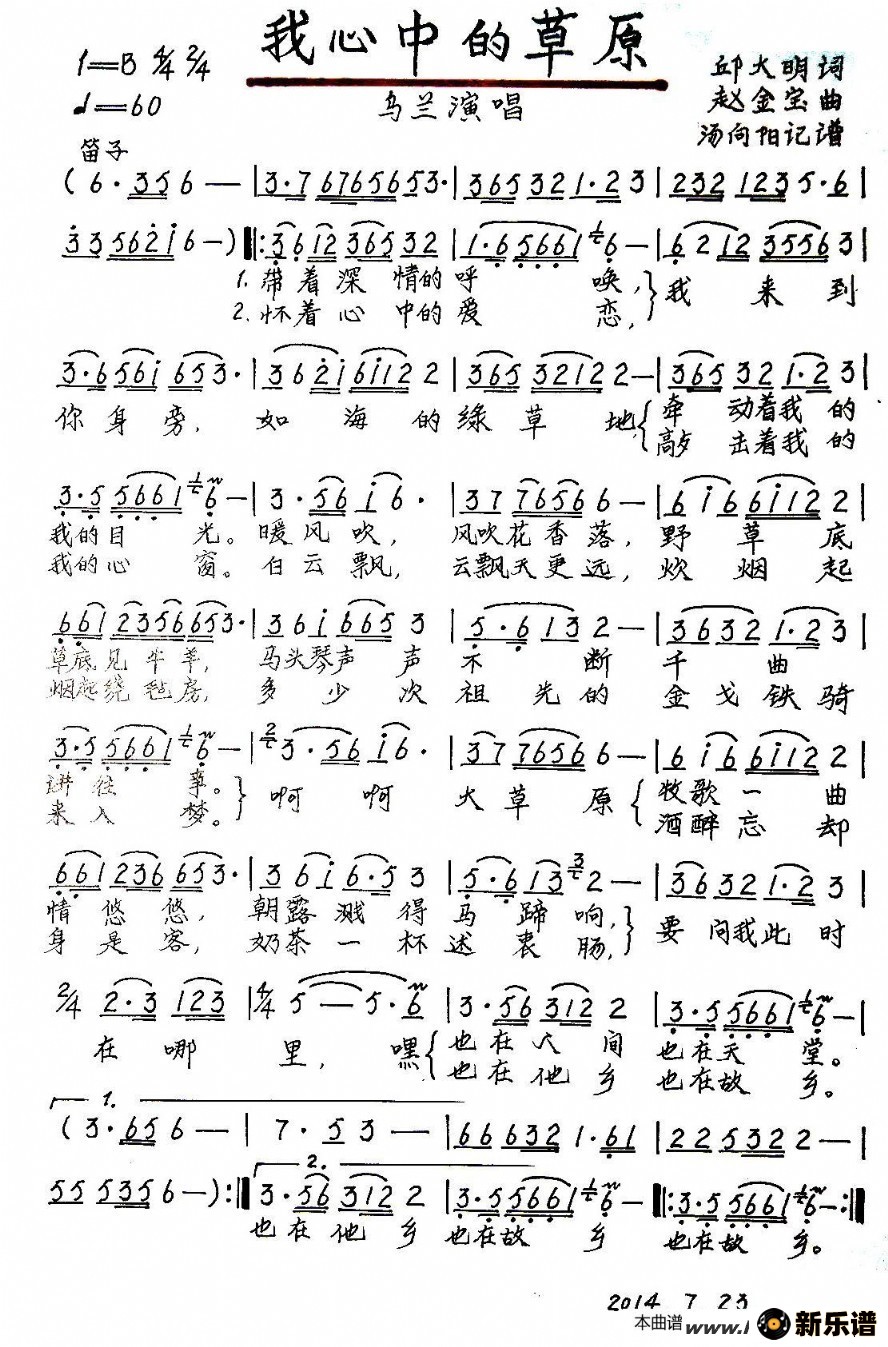 我心中的草原
1=B 4/4 2/4
♩=60
乌兰演唱
邱大明词
赵金宝曲
汤向阳记谱
笛子
(6·356—|3·76765653·|365321·23|2321235·6|
3356216—)|:361236532|1·65661 6—|621235563|
1.带着深情的呼唤,}我来到
2.怀着心中的爱恋,
3·6561653·|36216112 2|36532122—|365321·23|
你身旁,如海的绿草地{牵动着我的
敲击着我的
3·55661 6—|3·56i6·|3776566—|6i66i122|
我的目光。暖风吹,风吹花香落,野草底
我的心窗。白云飘,云飘天更远,炊烟起
6612356653·|36i6653|5·6132—|36321·23|
草底见牛羊,马头琴声声不断千曲
烟起绕毡房,多少次祖先的金戈铁骑
3·55661 6—|3·56i6·|37765666—|6i66i122|
讲往事。}啊啊大草原{牧歌一曲
来入梦。酒醉忘却
661236653·|36i6·53|5·613 2—|36321·23|
情悠悠,朝露溅得马蹄响,}要问我此时
身是客,奶茶一杯述衷肠,
2/4 2·3123|4/4 5—5·6|3·563122|3·55661 6—|
在哪里,嘿{也在人间也在天堂。
也在他乡也在故乡。
1.
(3·656—|7·53—|666321·61|225322—|
2.
555356—):|3·563122|3·55661 6—|:3·55661 6—:|
也在他乡也在故乡也在故乡。
2014 7 23
本曲谱 www.
新乐谱